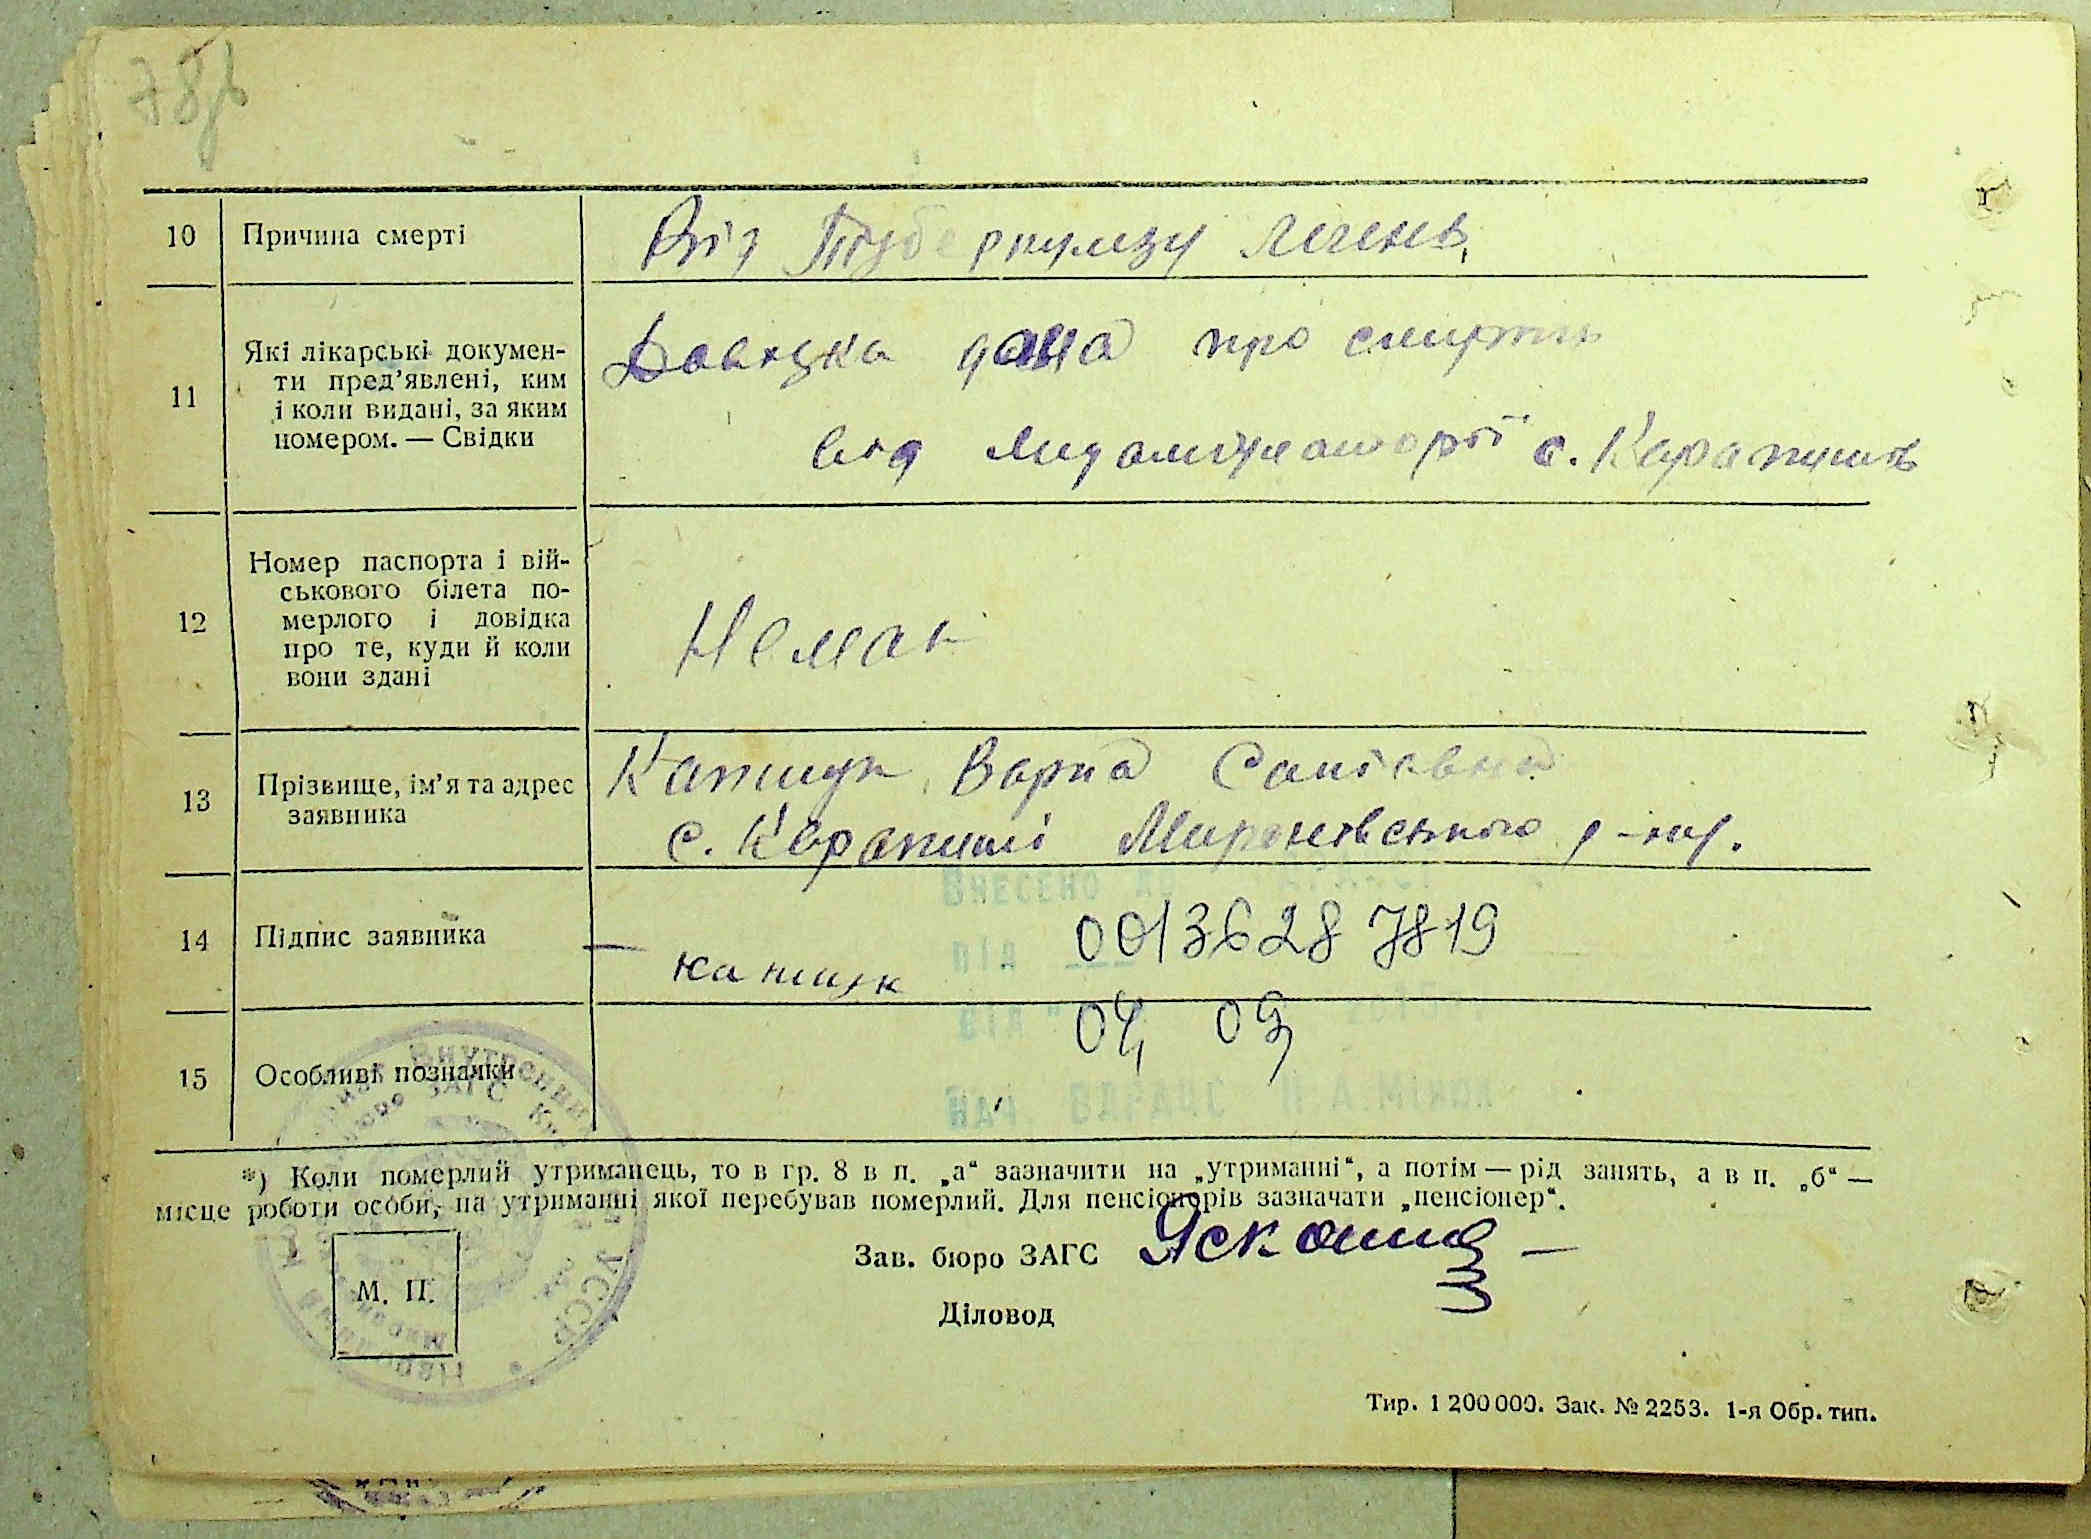 10 Причина смерті Від Туберкулзу легень
11 Які лікарські докумен-
ти пред’явлені, ким
і коли видані, за яким
номером. — Свідки
Довідка дана про смерть
від с. Карапиші
12 Номер паспорта і вій-
ськового білета по-
мерлого і довідка
про те, куди й коли
вони здані
Немає
13 Прізвище, ім’я та адрес
заявника
Варка
с. Карапиші Миронівського р-ну.
14 Підпис заявника
Внесено до
від
00136287819
від " 04 09
15 Особливі позначки
Нач. ВДРАЦС
Бюро ЗАГС
УССР
*) Коли померлий утриманець, то в гр. 8 в п. „а“ зазначити на „утриманні“, а потім — рід занять, а в п. „б“ —
місце роботи особи, на утриманні якої перебував померлий. Для пенсіонерів зазначати „пенсіонер“.
Зав. бюро ЗАГС
М. П.
Діловод
Тир. 1 200 000. Зак. № 2253. 1-я Обр. тип.